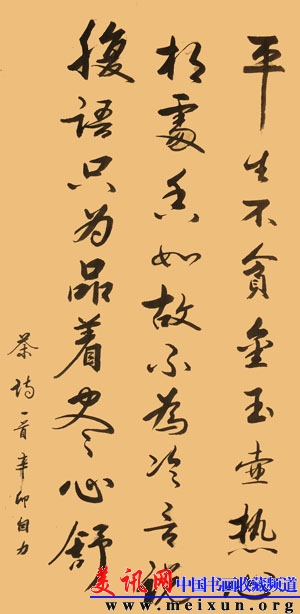 平生不貪金玉壶热心
相處如故不為冷言說
腹語只为品着尽心舒
茶诗一首辛卯自力
美讯网
中国书画收藏频道
www.meixun.org